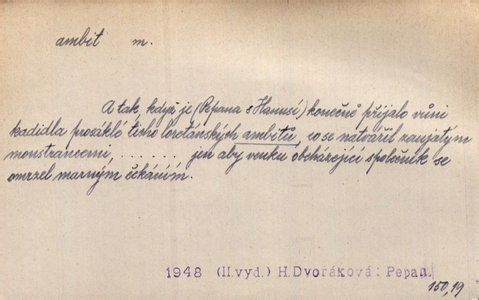 ambit m.
A tak, když je (Pepana s Hanusí) konečně přijalo vůní
kadidla prosáklé ticho loretánských ambitů, co se natvářil zaujatým
monstrancemi, . . . . . . . jen aby venku obcházející společník se
omrzel marným čekáním.
1948 (II.vyd.) H.Dvořáková: Pepan.
150,19